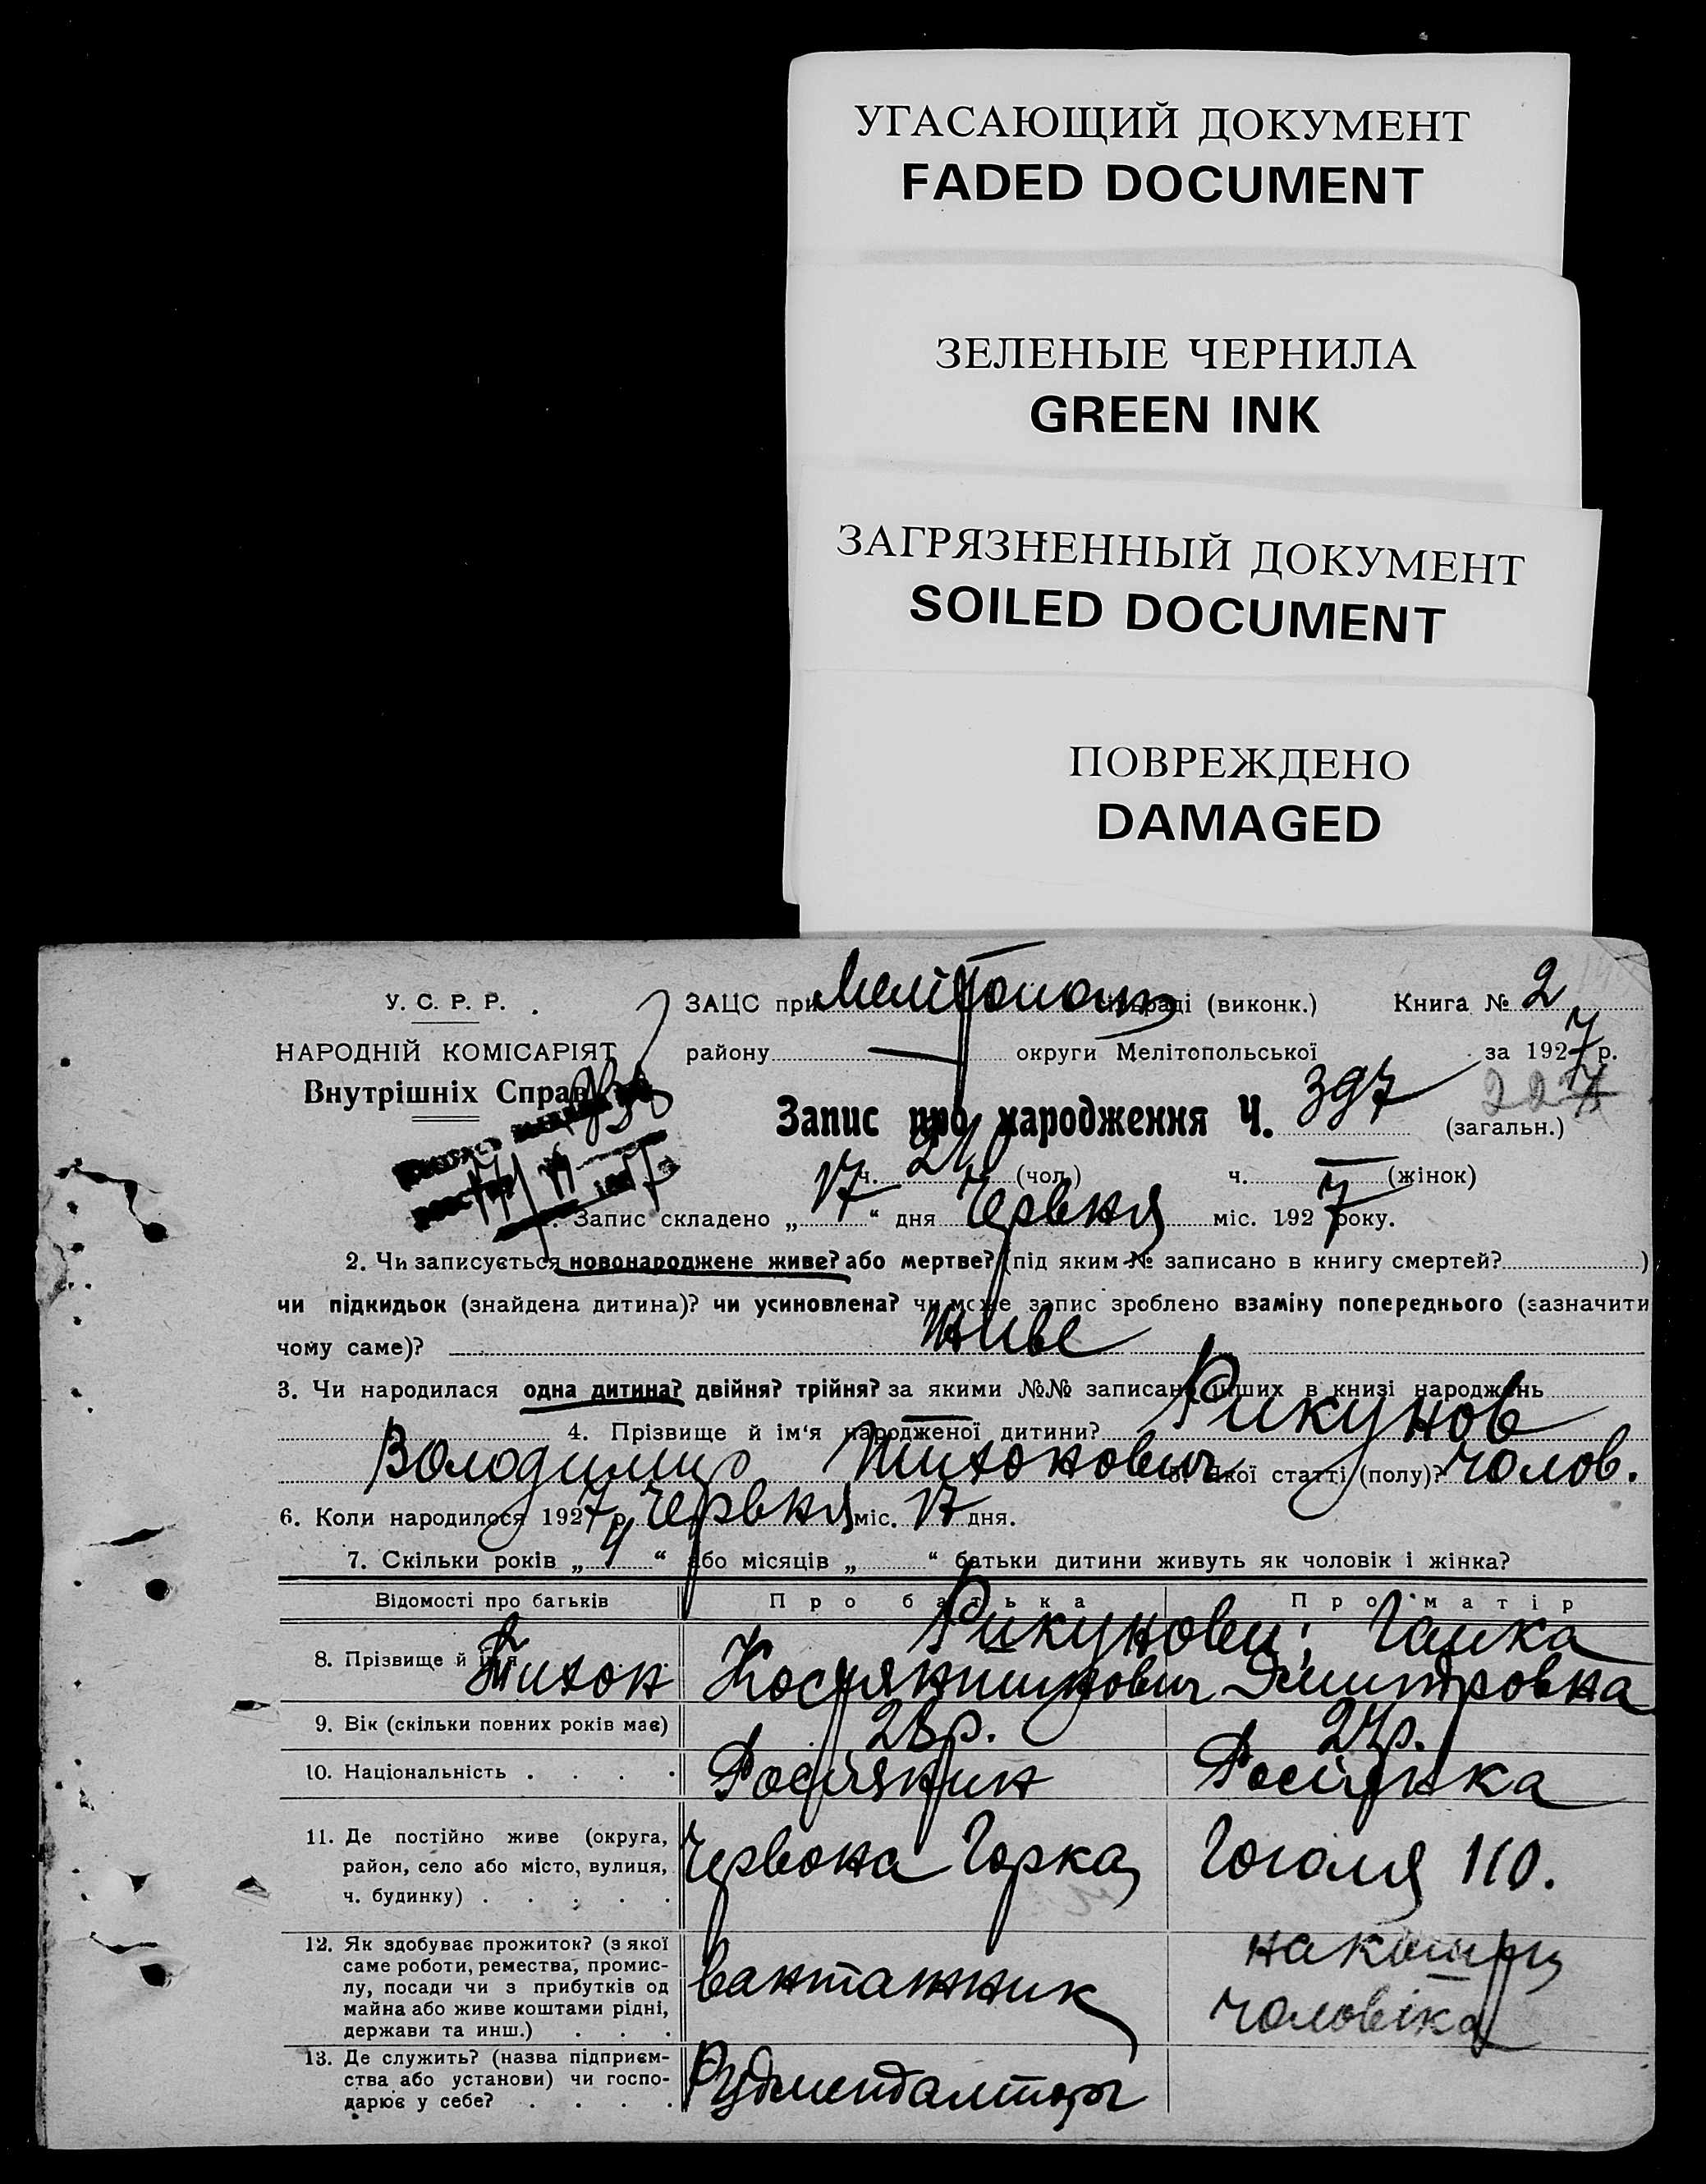 УГАСАЮЩИЙ ДОКУМЕНТ
FADED DOCUMENT
ЗЕЛЕНЫЕ ЧЕРНИЛА
GREEN INK
ЗАГРЯЗНЕННЫЙ ДОКУМЕНТ
SOILED DOCUMENT
ПОВРЕЖДЕНО
DAMAGED
У. С. Р. Р.
ЗАЦС при (виконк.) Книга № 2
НАРОДНІЙ КОМІСАРІЯТ
району — округи Мелітопольської за 1927 р.
Внутрішніх Справ
Запис про народження Ч. 397 (загальн.)
ч. 210 (чол.) ч. — (жінок)
1. Запис складено „17“ дня Червня міс. 1927 року.
2. Чи записується новонароджене живе? або мертве? (під яким № записано в книгу смертей? )
чи підкидьок (знайдена дитина)? чи усиновлена? чи може запис зроблено взаміну попереднього (зазначити
чому саме)? живе
3. Чи народилася одна дитина? двійня? трійня? за якими №№ записано інших в книзі народжень
4. Прізвище й ім'я народженої дитини? Рикунов
Володимир Тихонович 5. Якої статті (полу)? чолов.
6. Коли народилося 1927 р. Червня міс. 17 дня.
7. Скільки років „4“ або місяців „ “ батьки дитини живуть як чоловік і жінка?
Відомості про батьків Про батька Про матір
Рикунови; Ганка
8. Прізвище й ім'я Тихон Костянтинович Дмитровна
9. Вік (скільки повних років має) 28 р. 24 р.
10. Національність . . . . Росіянин Росіянка
11. Де постійно живе (округа,
район, село або місто, вулиця,
ч. будинку) . . . . .
Червона Горка, Гоголя 110.
12. Як здобуває прожиток? (з якої
саме роботи, ремества, промис-
лу, посади чи з прибутків од
майна або живе коштами рідні,
держави та инш.) . . .
вантажник
чоловіка
13. Де служить? (назва підприєм-
ства або установи) чи госпо-
дарює у себе? . . . .